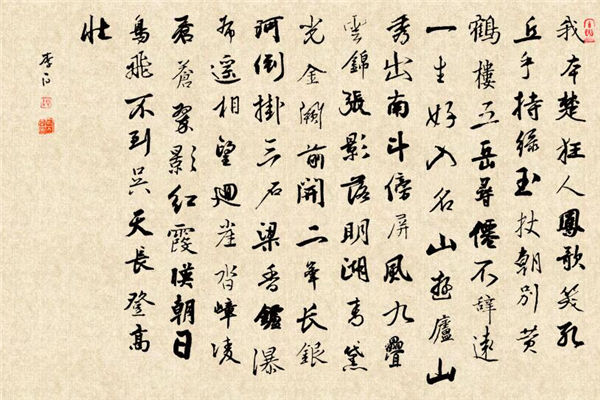 我本楚狂人鳳歌笑孔
丘手持緑玉杖朝別黄
鶴樓五岳尋僊不辞遠
一生好入名山遊廬山
秀出南斗傍屏風九疊
雲錦張影落明湖青黛
光金闕前開二峯長銀
河倒掛三石梁香鑪瀑
布遥相望迴崖沓嶂凌
蒼蒼翠影紅霞暎朝日
鳥飛不到吳天長登高
壯